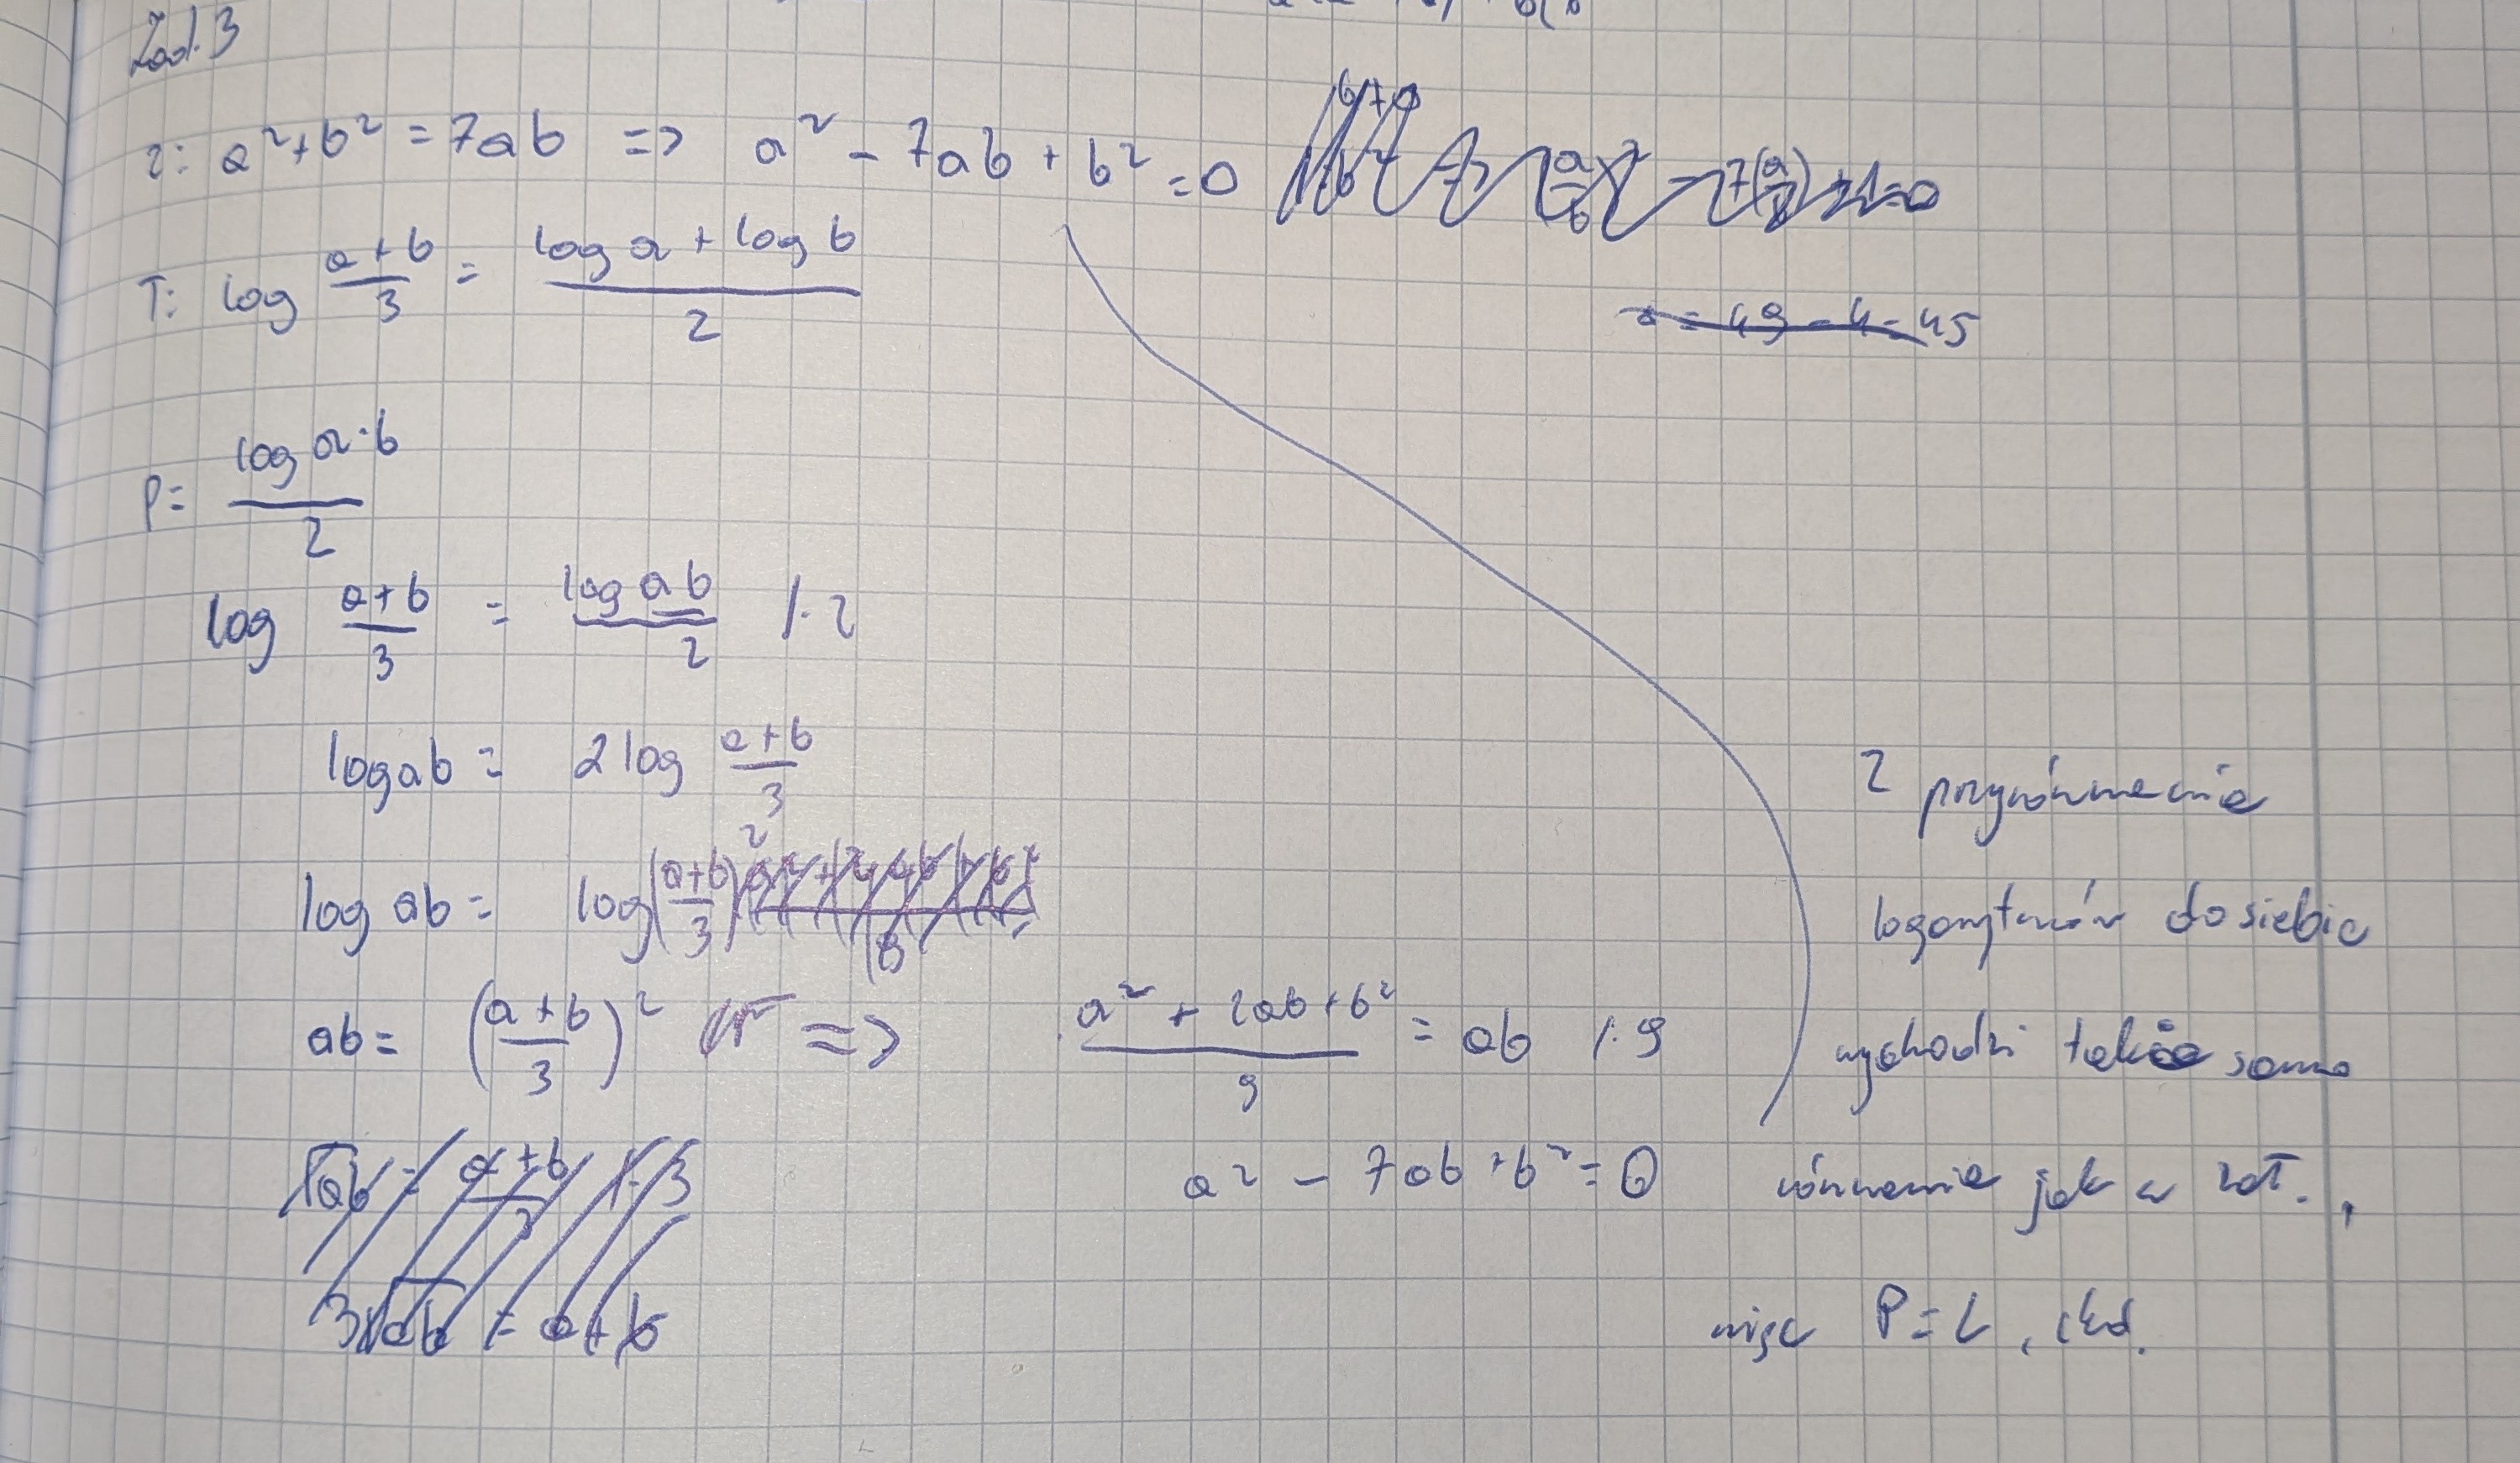 Zad.3
Z: a²+b² = 7ab => a² - 7ab + b² = 0
T: log (a+b)/3 = (log a + log b)/2
α = 49 - 4 = 45
P = (log a·b)/2
log (a+b)/3 = (log ab)/2 /·2
log ab = 2 log (a+b)/3
log ab = log((a+b)/3)²
ab = ((a+b)/3)² => (a² + 2ab + b²)/9 = ab /·9
√ab = (a+b)/3 /·3
a² - 7ab + b² = 0
3√ab = a+b
Z przyrównania
logarytmów do siebie
wychodzi takie samo
równanie jak w zał.,
więc P = L, ckd.